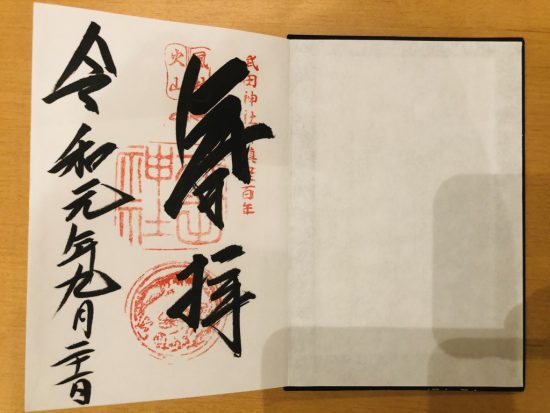 武田神社鎮座百年
奉拝
風林
火山
神社
令和元年九月二十日